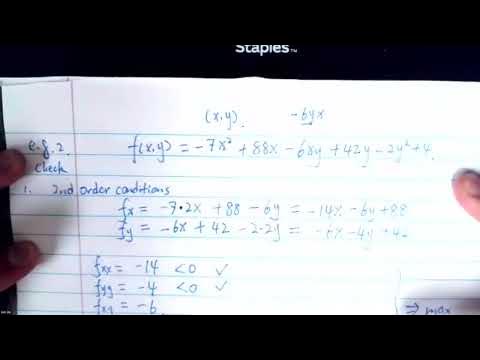 Staples™
(x,y) -6yx
e.g.2. f(x,y) = -7x² + 88x - 6xy + 42y - 2y² + 4.
check
1. 2nd order conditions
fx = -7·2x + 88 - 6y = -14x - 6y + 88
fy = -6x + 42 - 2·2y = -6x - 4y + 42
fxx = -14 < 0 ✓
fyy = -4 < 0 ✓
fxy = -6 ⇒ max